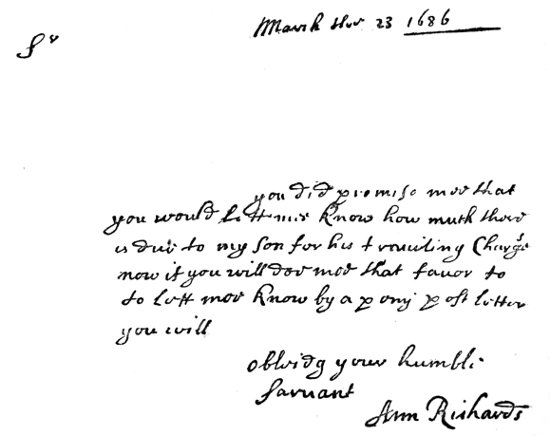 March the 23 1686
Sr
you did promise mee that
you would lett mee know how much there
is due to my son for his traviling Charge
now if you will doe mee that favor to
to lett mee know by a peny post letter
you will
obleidg your humble
sarvant
Ann Richards